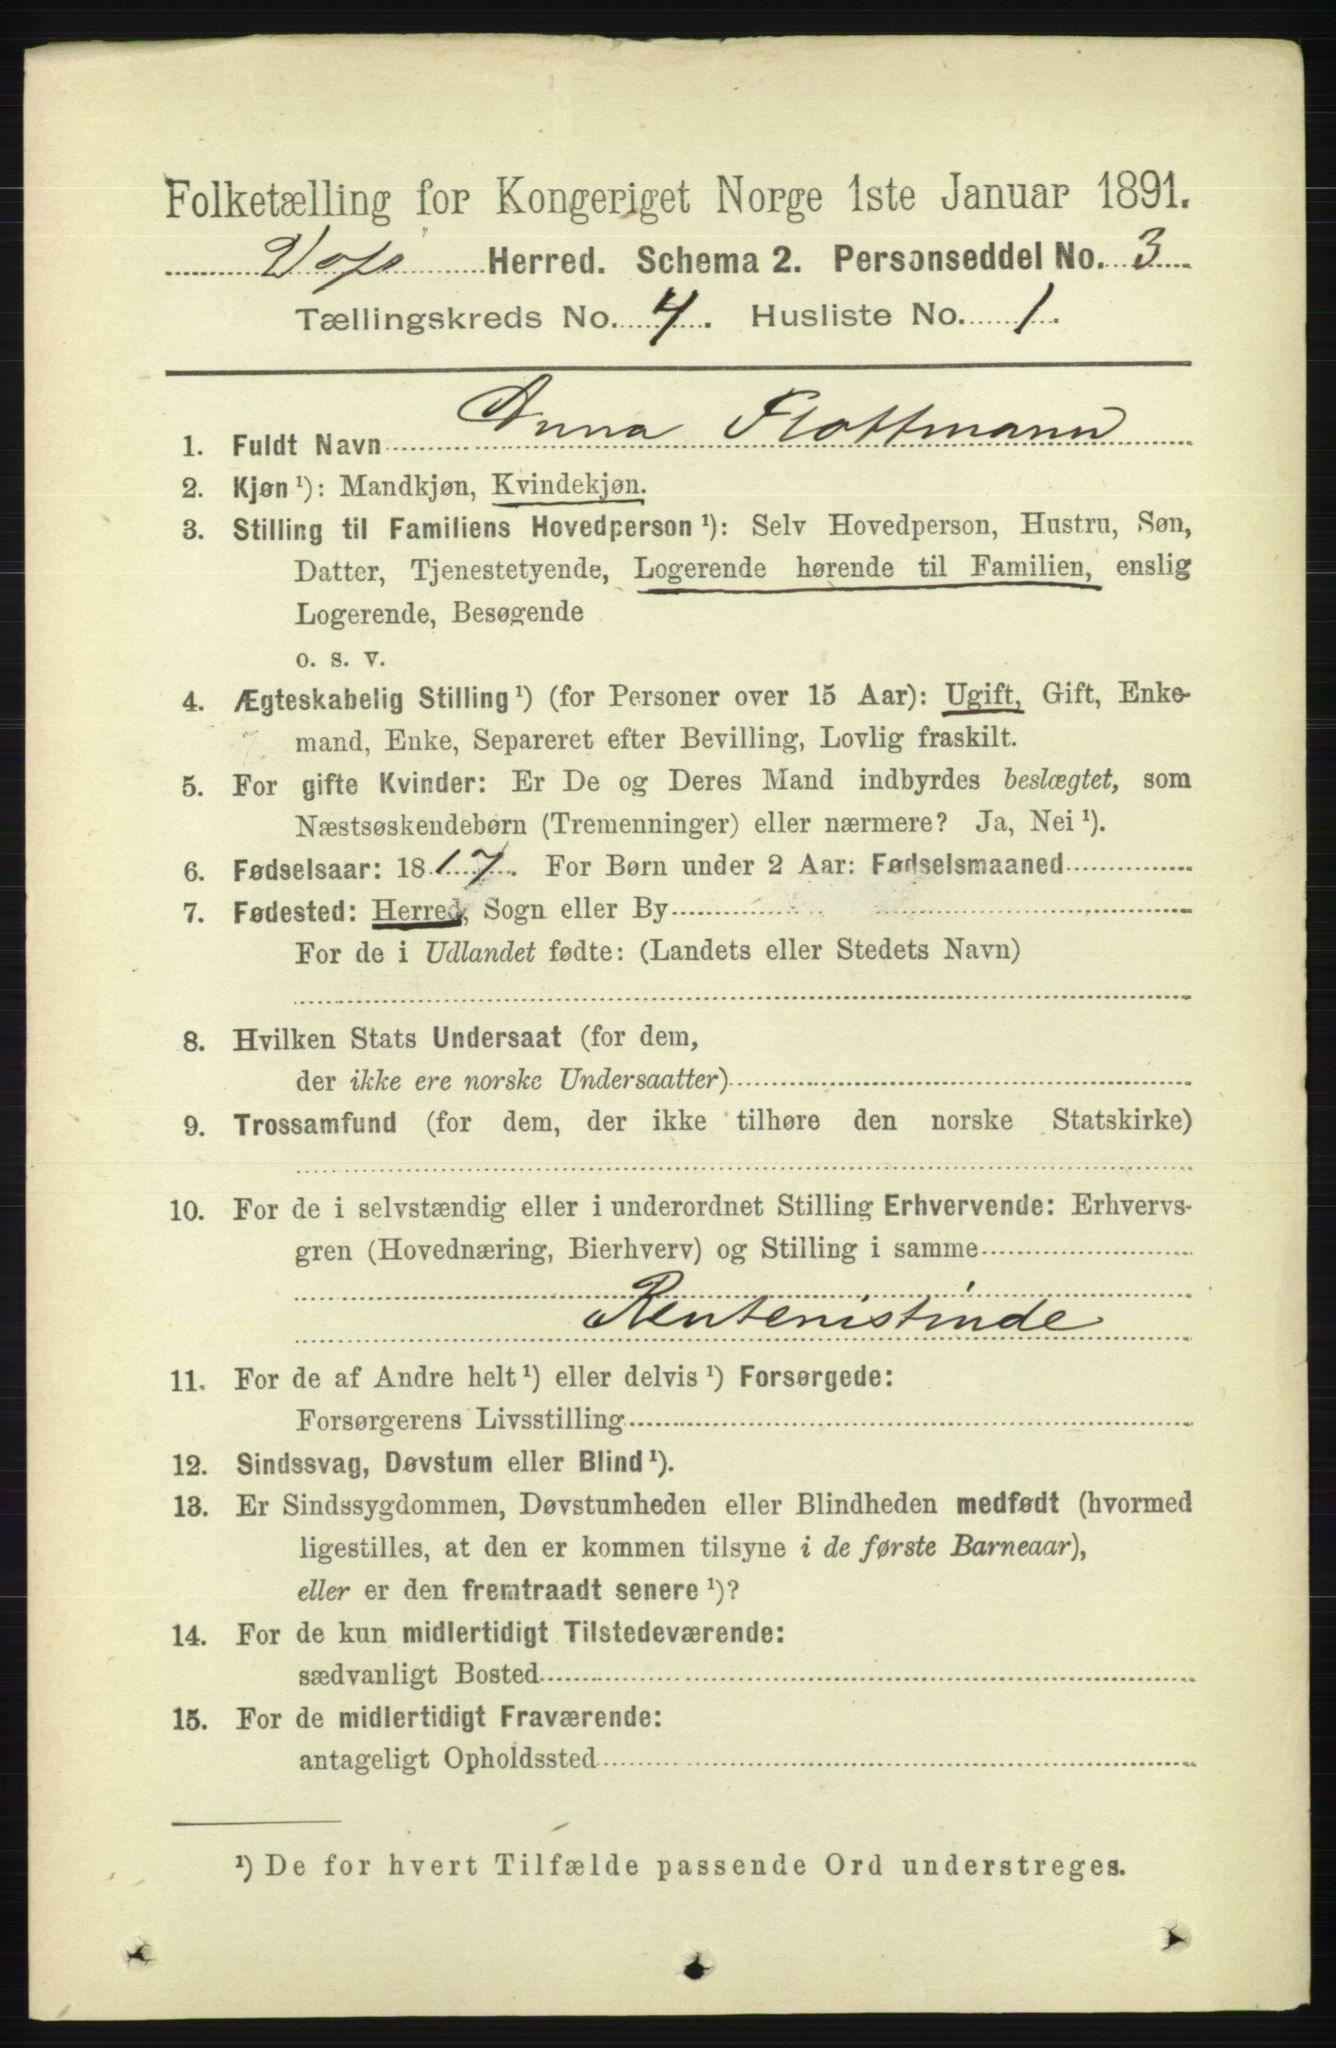 Folketælling for Kongeriget Norge 1ste Januar 1891.
Voss Herred. Schema 2. Personseddel No. 3
Tællingskreds No. 4. Husliste No. 1.
1. Fuldt Navn Anna Flottmann
2. Kjøn ¹): Mandkjøn, Kvindekjøn.
3. Stilling til Familiens Hovedperson ¹): Selv Hovedperson, Hustru, Søn,
Datter, Tjenestetyende, Logerende hørende til Familien, enslig
Logerende, Besøgende
o. s. v.
4. Ægteskabelig Stilling ¹) (for Personer over 15 Aar): Ugift, Gift, Enke-
mand, Enke, Separeret efter Bevilling, Lovlig fraskilt.
5. For gifte Kvinder: Er De og Deres Mand indbyrdes beslægtet, som
Næstsøskendebørn (Tremenninger) eller nærmere? Ja, Nei ¹).
6. Fødselsaar: 1817. For Børn under 2 Aar: Fødselsmaaned
7. Fødested: Herred, Sogn eller By
For de i Udlandet fødte: (Landets eller Stedets Navn)
8. Hvilken Stats Undersaat (for dem,
der ikke ere norske Undersaatter)
9. Trossamfund (for dem, der ikke tilhøre den norske Statskirke)
10. For de i selvstændig eller i underordnet Stilling Erhvervende: Erhvervs-
gren (Hovednæring, Bierhverv) og Stilling i samme
Rentenistinde
11. For de af Andre helt ¹) eller delvis ¹) Forsørgede:
Forsørgerens Livsstilling
12. Sindssvag, Døvstum eller Blind ¹).
13. Er Sindssygdommen, Døvstumheden eller Blindheden medfødt (hvormed
ligestilles, at den er kommen tilsyne i de første Barneaar),
eller er den fremtraadt senere ¹)?
14. For de kun midlertidigt Tilstedeværende:
sædvanligt Bosted
15. For de midlertidigt Fraværende:
antageligt Opholdssted
¹) De for hvert Tilfælde passende Ord understreges.